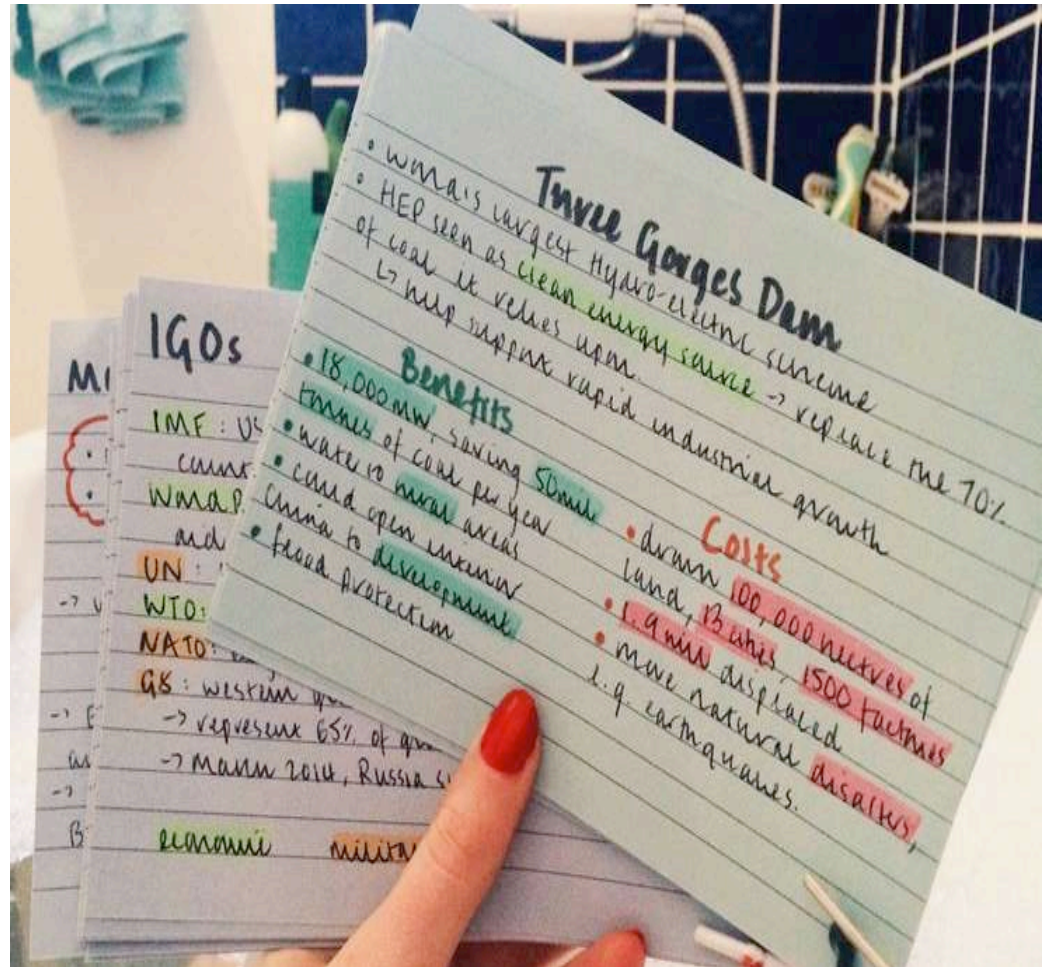 Three Gorges Dam
• World's largest Hydro-electric scheme
• HEP seen as clean energy source -> replace the 70%
of coal it relies upon.
↳ help support rapid industrial growth
Benefits
• 18,000MW, saving 50mil
tonnes of coal per year
• water to rural areas
• could open interior
China to development
• flood protection
Costs
• drown 100,000 hectres of
land, 13 cities, 1500 factories
• 1.9mill displaced
• more natural disasters,
e.g. earthquakes.
IGOs
IMF : US
count
World B
aid
UN :
WTO:
NATO:
G8 : western
-> represent 65% of
-> March 2014, Russia s
economic milita